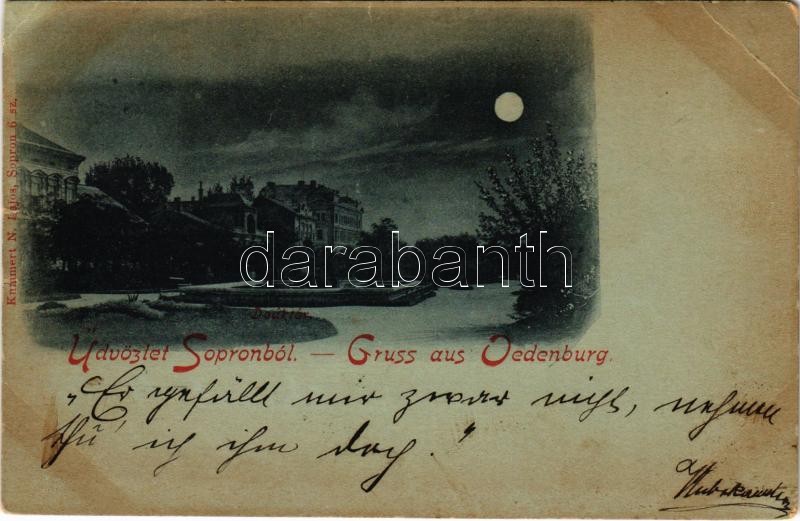 Kummert N. Lajos, Sopron 6 sz.
darabanth
Deák tér.
Üdvözlet Sopronból. — Gruss aus Oedenburg.
„Er gefällt mir zwar nicht, nehmen
thu' ich ihm doch."